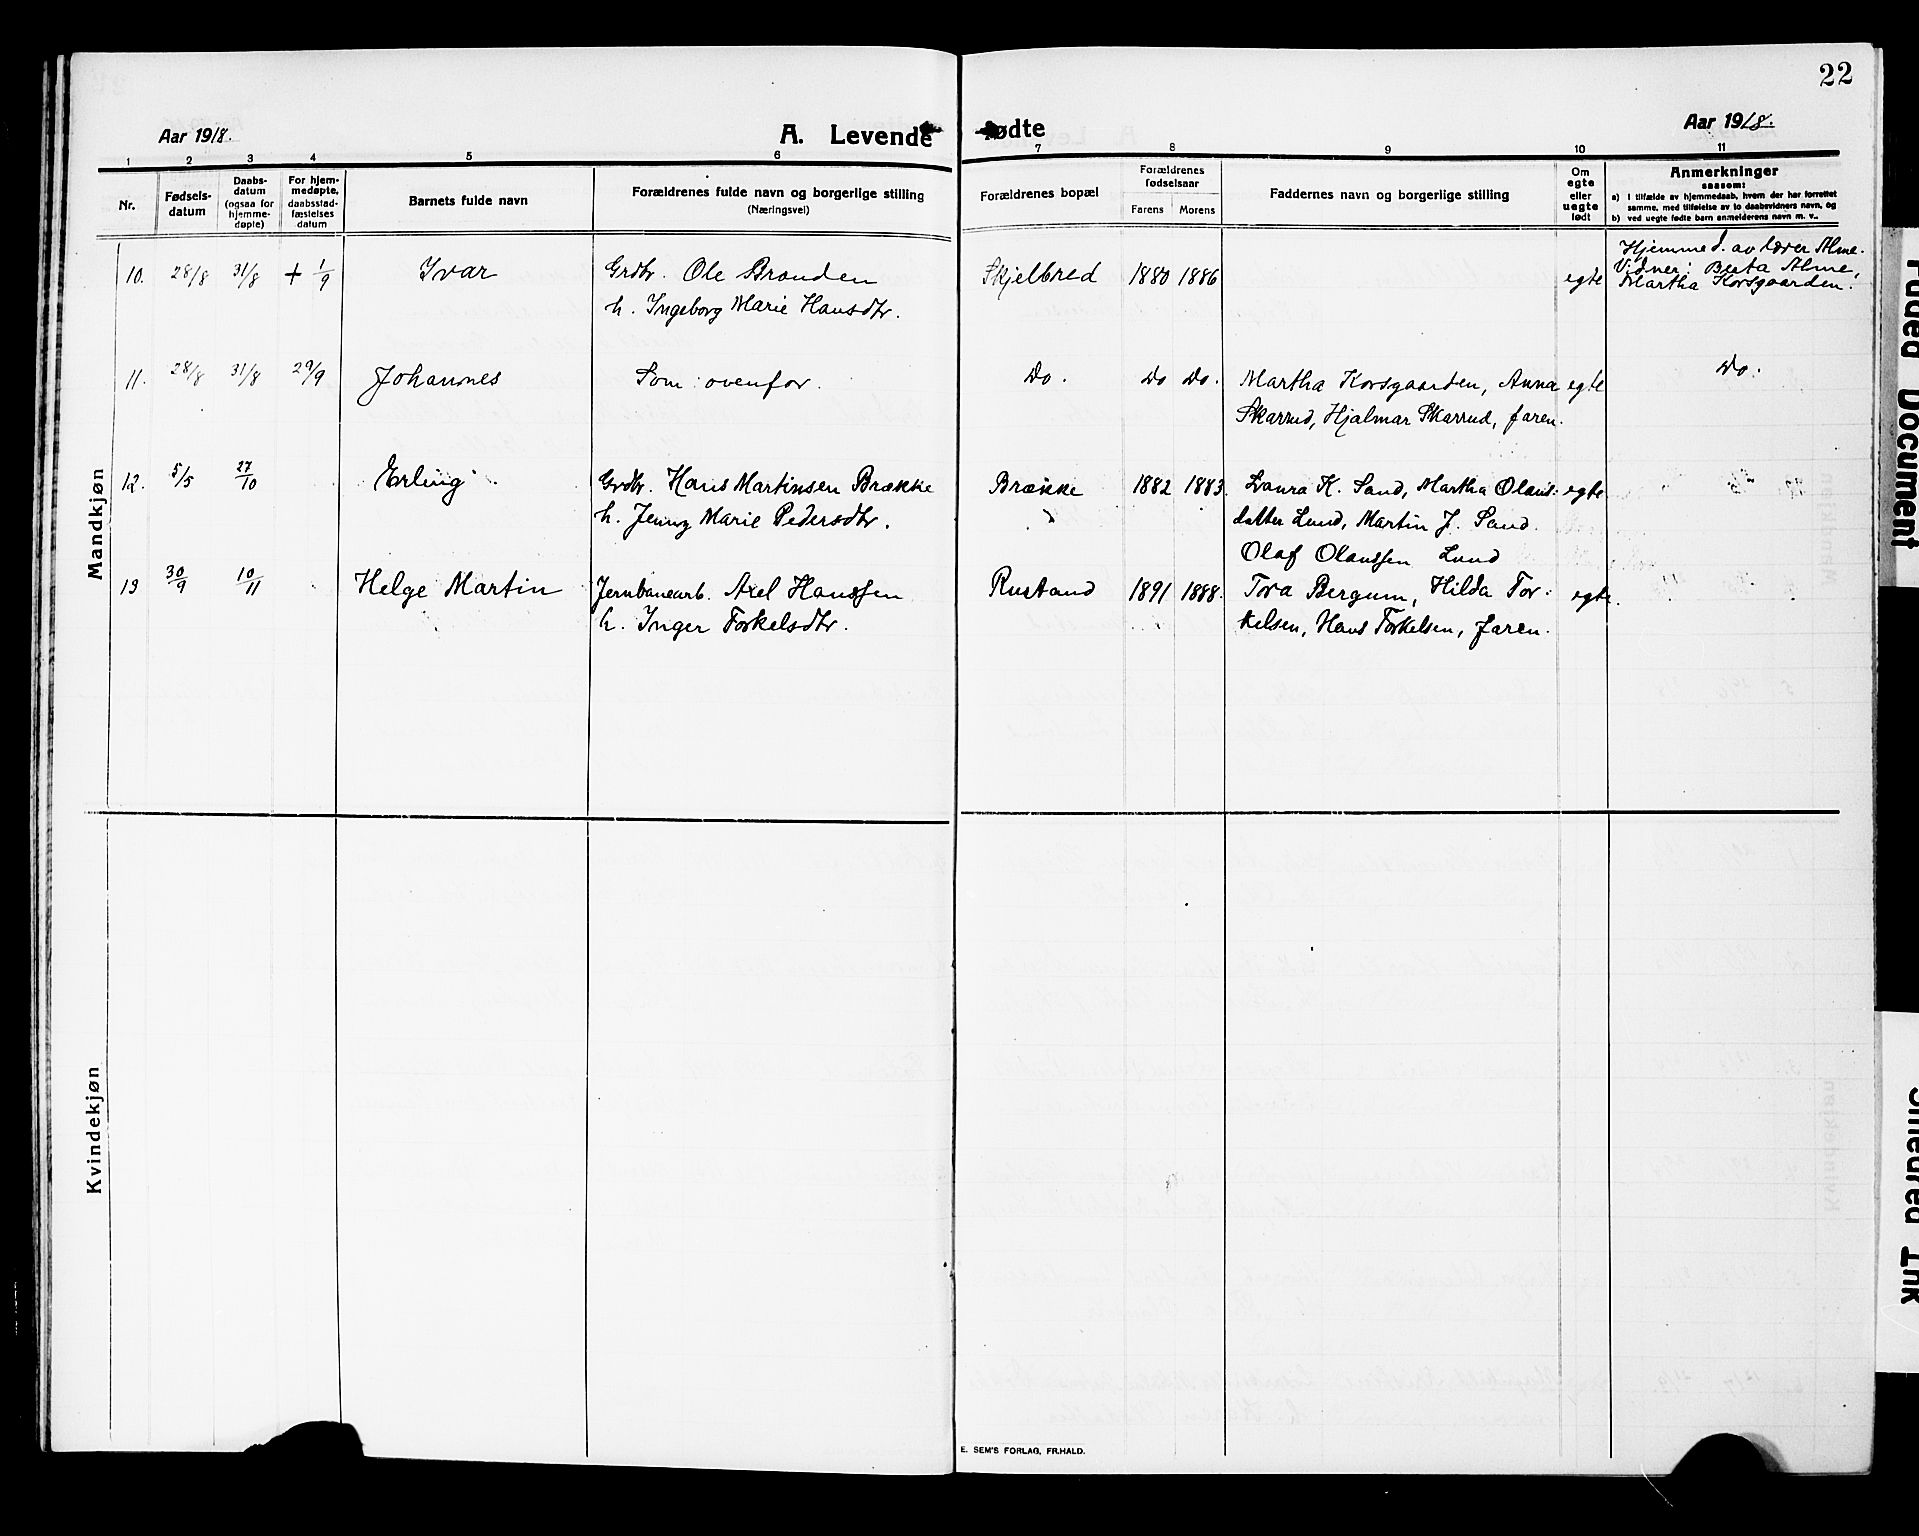 22
Aar 1918.
A. Levende fødte
Aar 1918.
1 2 3 4 5 6 7 8 9 10 11
Nr.
Fødsels-
datum
Daabs-
datum
(ogsaa for
hjemme-
døpte)
For hjem-
medøpte,
daabsstad-
fæstelses
datum
Barnets fulde navn
Forældrenes fulde navn og borgerlige stilling
(Næringsvei)
Forældrenes bopæl
Forældrenes
fødselsaar
Farens Morens
Faddernes navn og borgerlige stilling
Om
egte
eller
uegte
født
Anmerkninger
saasom:
a) i tilfælde av hjemmedaab, hvem der har forrettet
samme, med tilføielse av to daabsvidners navn, og
b) ved uegte fødte barn anmelderens navn m. v..
Mandkjøn
10. 28/8 31/8 + 1/9 Ivar Grdbr. Ole Brænden Skjelbred 1880 1886 egte Hjemmed. av lærer Alme.
h. Ingeborg Marie Hansdtr. Vidner: Berta Alme,
Martha Korsgaarden.
11. 28/8 31/8 29/9 Johannes Som ovenfor. Do. Do Do. Martha Korsgaarden, Anna egte Do.
Skarrud, Hjalmar Skarrud, faren.
12. 5/5 27/10 Erling Grdbr. Hans Martinsen Brække Brække 1882 1883. Laura K. Sand, Martha Olaus- egte
h. Jenny Marie Pedersdtr. datter Lund, Martin J. Sand.
Olaf Olaussen Lund
13 30/9 10/11 Helge Martin Jernbanearb. Axel Hanssen Rustand 1891 1888. Tora Bergum, Hilda Tor- egte.
h. Inger Torkelsdtr. kelsen, Hans Torkelsen, faren.
Kvindekjøn
E. SEM'S FORLAG, FR.HALD.
Faded Document
Smeared Ink